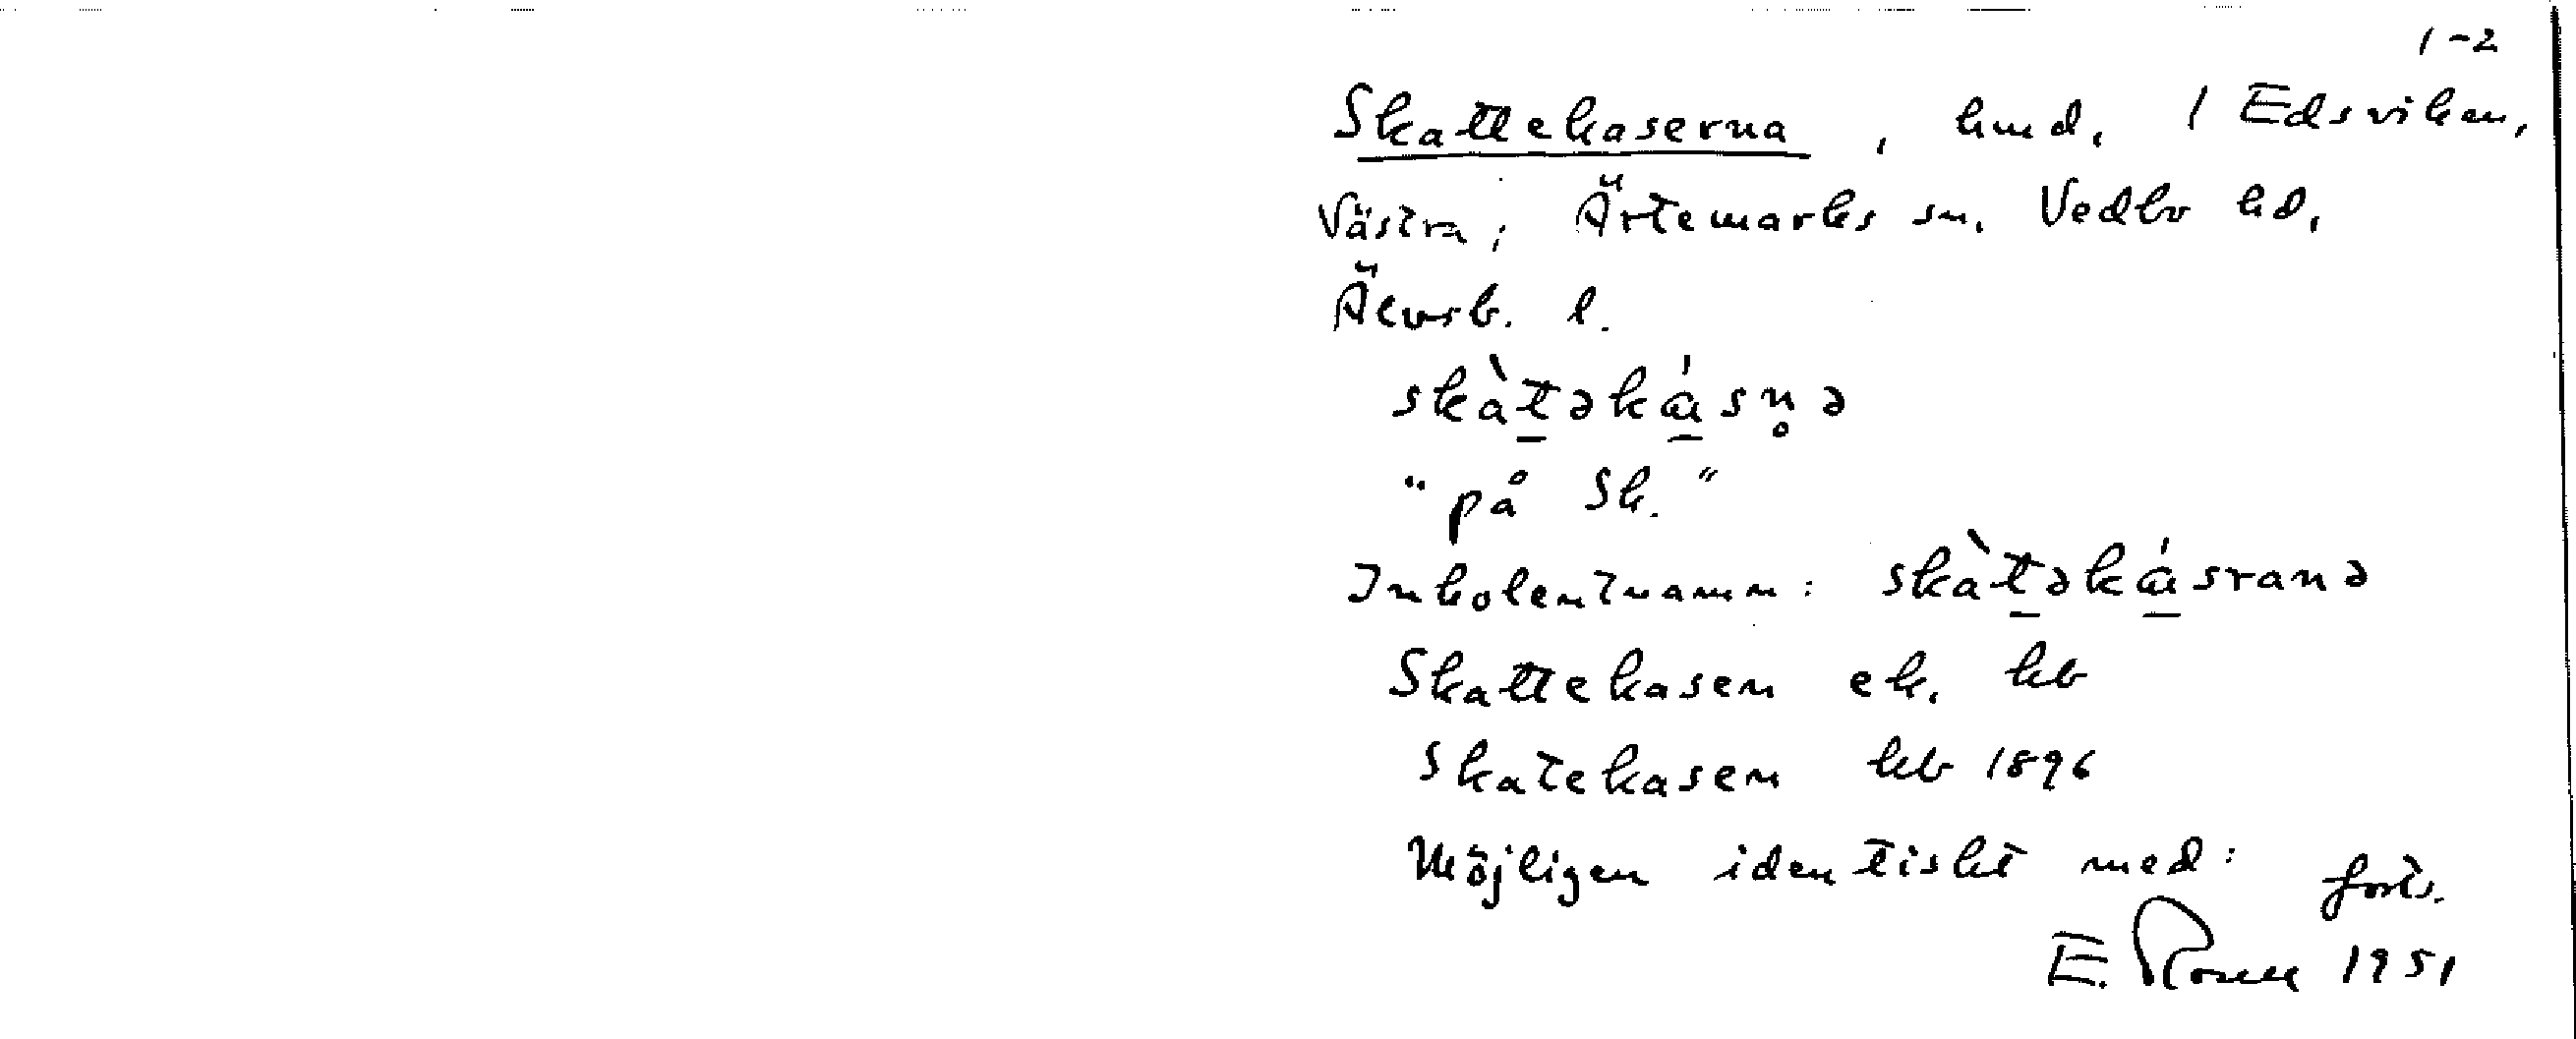 1-2
Skattekaserna, hmd. 1 Edsviken,
Västra, Ärtemarks sn. Vedbo hd.
Älvsb. l.
skàt̲əká̲sn̥ə
"på Sk."
Inkolentnamn: skàt̲əká̲sranə
Skattekasen ek. kb
Skatekasen kb 1896
Möjligen identiskt med: forts.
E. 1951